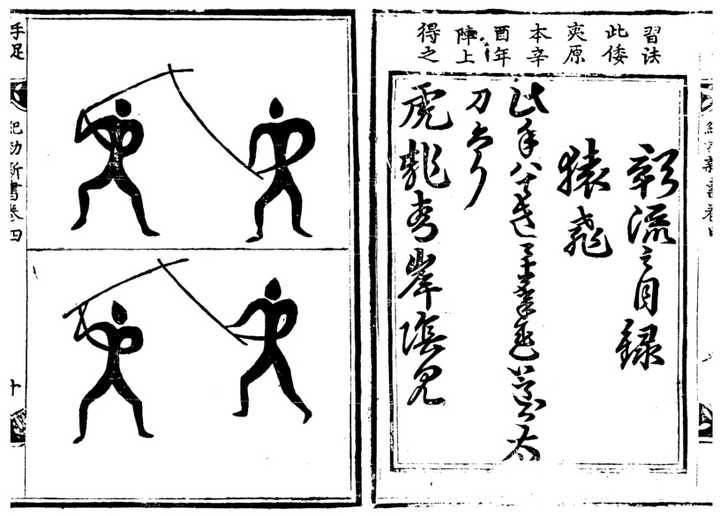 習法
此倭
夷原
本辛
酉年
陣上
得之
影流之目録
猿飛
此手ハ
太
刀
虎飛青岸陰見
手足
紀効新書卷四
十